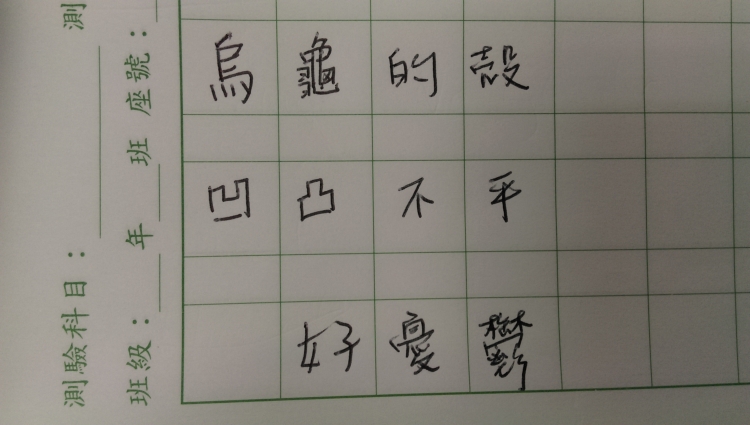 測驗科目：
測
班級：__年__班 座號：
烏龜的殼
凹凸不平
好憂鬱